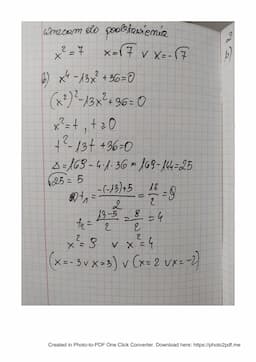 wracam do podstawienia
x² = 7   x = √7 ∨ x = -√7
b) x⁴ - 13x² + 36 = 0
(x²)² - 13x² + 36 = 0
x² = t, t ≥ 0
t² - 13t + 36 = 0
Δ = 169 - 4·1·36 = 169 - 144 = 25
√25 = 5
t₁ = -(-13)+5 / 2 = 18 / 2 = 9
t₂ = 13-5 / 2 = 8 / 2 = 4
x² = 9 ∨ x² = 4
(x = -3 ∨ x = 3) ∨ (x = 2 ∨ x = -2)
2
b)
Created in Photo-to-PDF One Click Converter. Download here: https://photo2pdf.me